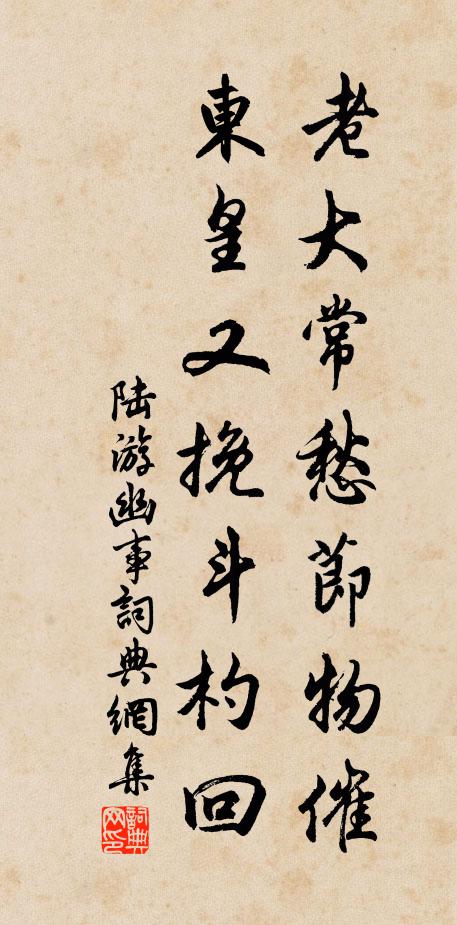 老大常愁節物催
東皇又挽斗杓回
陆游幽事詞典網集
詞典网印